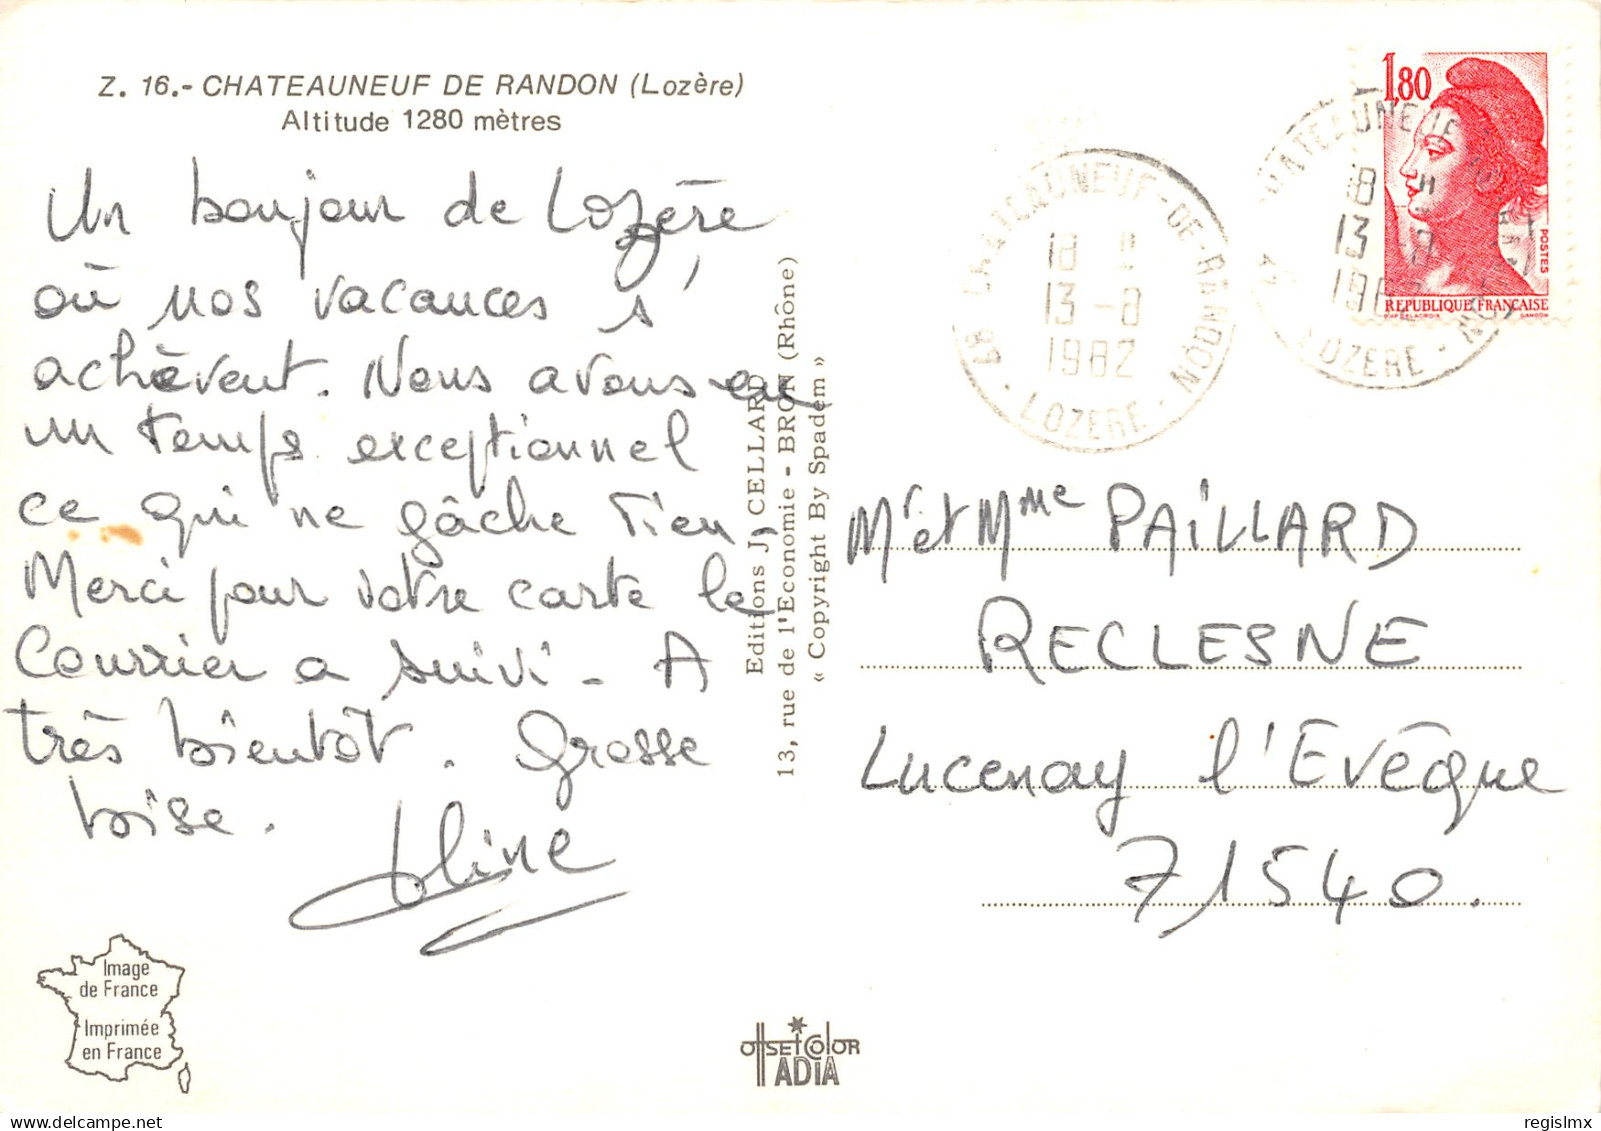 Z. 16.- CHATEAUNEUF DE RANDON (Lozère)
Altitude 1280 mètres
Un bonjour de Lozère
où nos vacances s'
achèvent. Nous avons eu
un temps exceptionnel
ce qui ne gâche rien.
Merci pour votre carte le
Courrier a suivi - A
très bientôt. Grosse
bise.
Aline
Image
de France
Imprimée
en France
Editions J. CELLARD
13, rue de l'Economie - BRON (Rhône)
« Copyright By Spadem »
OFFSET COLOR
ADIA
1,80
POSTES
REPUBLIQUE FRANÇAISE
D'AP DELACROIX GANDON
CHATEAUNEUF-DE-RANDON
18 H
13 -8
1982
48 - LOZERE -
CHATEAUNEUF
18 H
13 -8
1982
48
LOZERE -
Mr et Mme PAILLARD
RECLESNE
Lucenay l'Evêque
71540.
regislmx